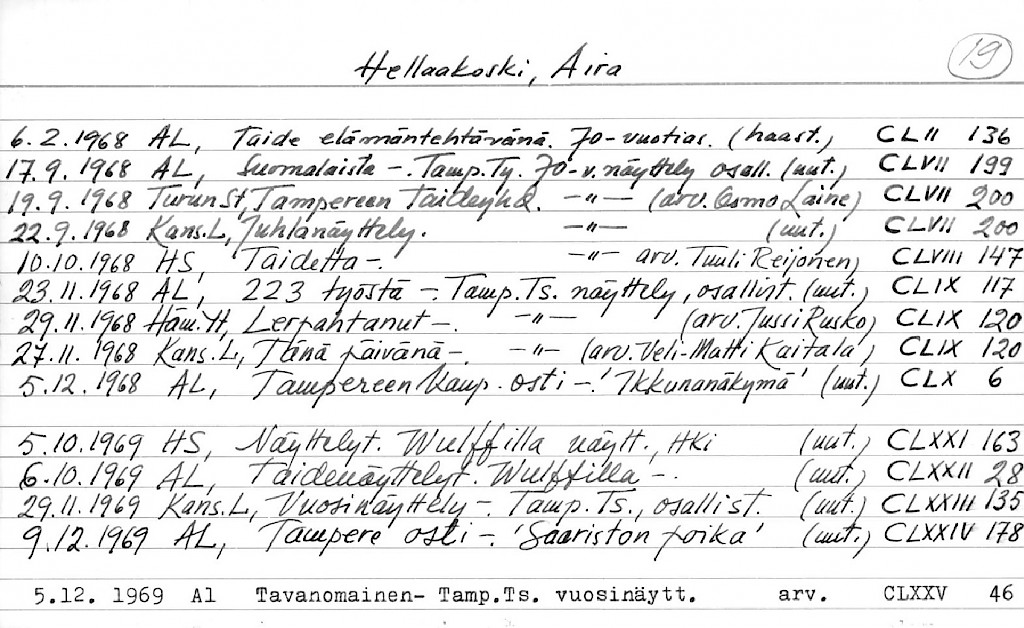 Hellaakoski, Aira
19
6.2.1968 AL, Taide elämäntehtävänä. 70-vuotias. (haast.) CLII 136
17.9.1968 AL, Suomalaista -. Tamp.Ty. 70-v. näyttely osall. (uut.) CLVII 199
19.9.1968 Turun St, Tampereen Taideyhd. -"- (arv. Osmo Laine) CLVII 200
22.9.1968 Kans.L, Juhlanäyttely. -"- (uut.) CLVII 200
10.10.1968 HS, Taidetta -. -"- arv. Tuuli Reijonen) CLVIII 147
23.11.1968 AL, 223 työstä -. Tamp.Ts. näyttely, osallist. (uut.) CLIX 117
29.11.1968 Häm.Yt, Lerpahtanut -. -"- (arv. Jussi Rusko) CLIX 120
27.11.1968 Kans.L, Tänä päivänä -. -"- (arv. Veli-Matti Kaitala) CLIX 120
5.12.1968 AL, Tampereen kaup. osti -. 'Ikkunanäkymä' (uut.) CLX 6
5.10.1969 HS, Näyttelyt. Wulffilla näytt., Hki (uut.) CLXXI 163
6.10.1969 AL, Taidenäyttelyt. Wulffilla -. (uut.) CLXXII 28
29.11.1969 Kans.L, Vuosinäyttely -. Tamp.Ts., osallist. (uut.) CLXXIII 135
9.12.1969 AL, Tampere osti -. 'Saariston poika' (uut.) CLXXIV 178
5.12. 1969 Al Tavanomainen- Tamp.Ts. vuosinäytt. arv. CLXXV 46